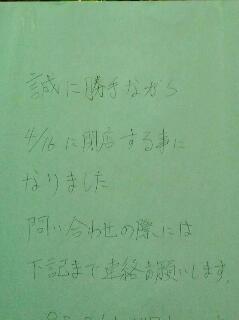 誠に勝手ながら
4/16に閉店する事に
なりました
問い合わせの際には
下記まで連絡お願いします。